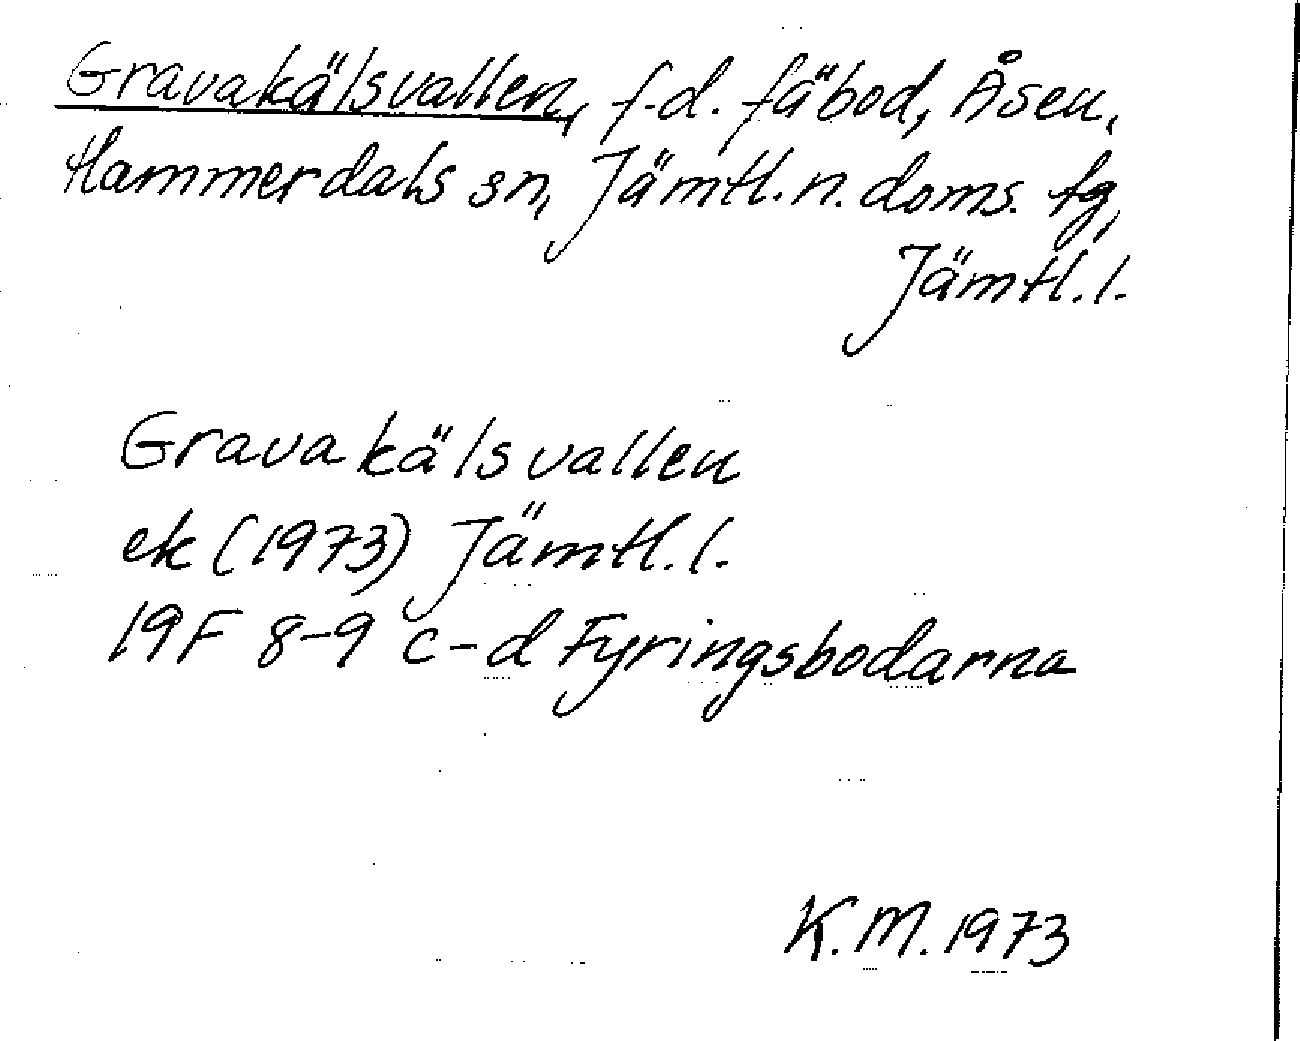 Gravakälsvallen, f.d. fäbod, Åsen,
Hammerdals sn, Jämtl. n. doms. tg,
Jämtl. l.
Gravakälsvallen
ek (1973) Jämtl. l.
19F 8-9 c-d Fyringsbodarna
K.M. 1973